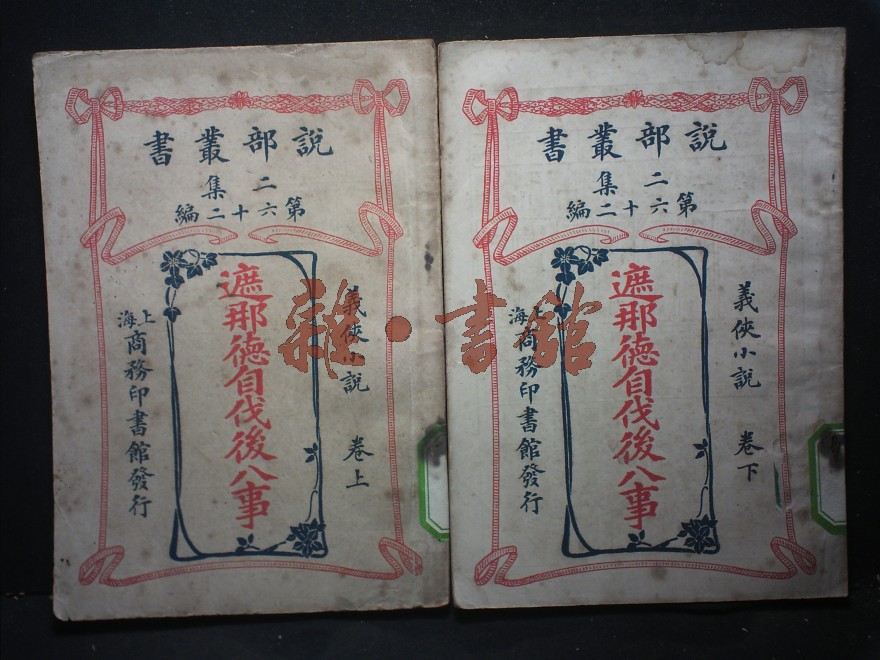 說部叢書
二集
第六十二編
義俠小說 卷上
遮那德自伐後八事
上海商務印書館發行
說部叢書
二集
第六十二編
義俠小說 卷下
遮那德自伐後八事
上海商務印書館發行
雜·書館